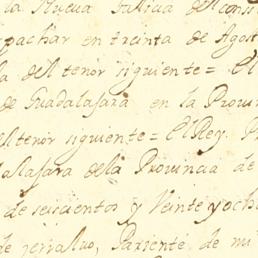 la Nueva Galicia del cons
pachar en treinta de Agost
la del tenor siguiente = El
de Guadalajara en la Provin
del tenor siguiente = El Rey. P
dalajara dela Provincia de
de seiscientos y Veinte y och
de zerraluo, Pariente de mi